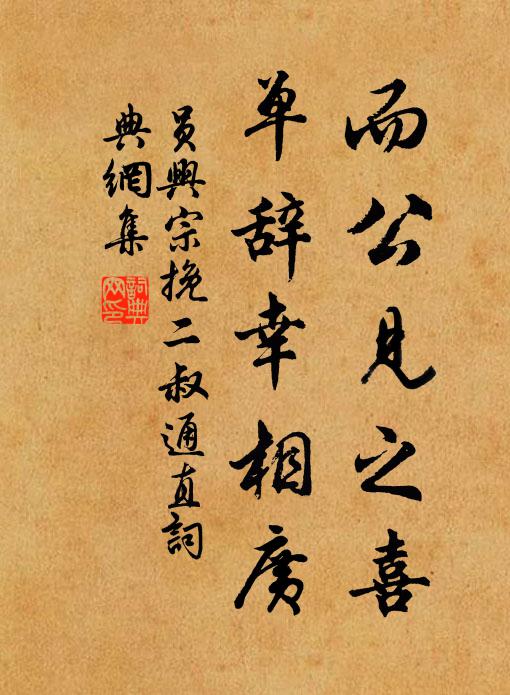 而公見之喜
单辞幸相廣
員興宗挽二叔通直詞
典網集
詞典網印